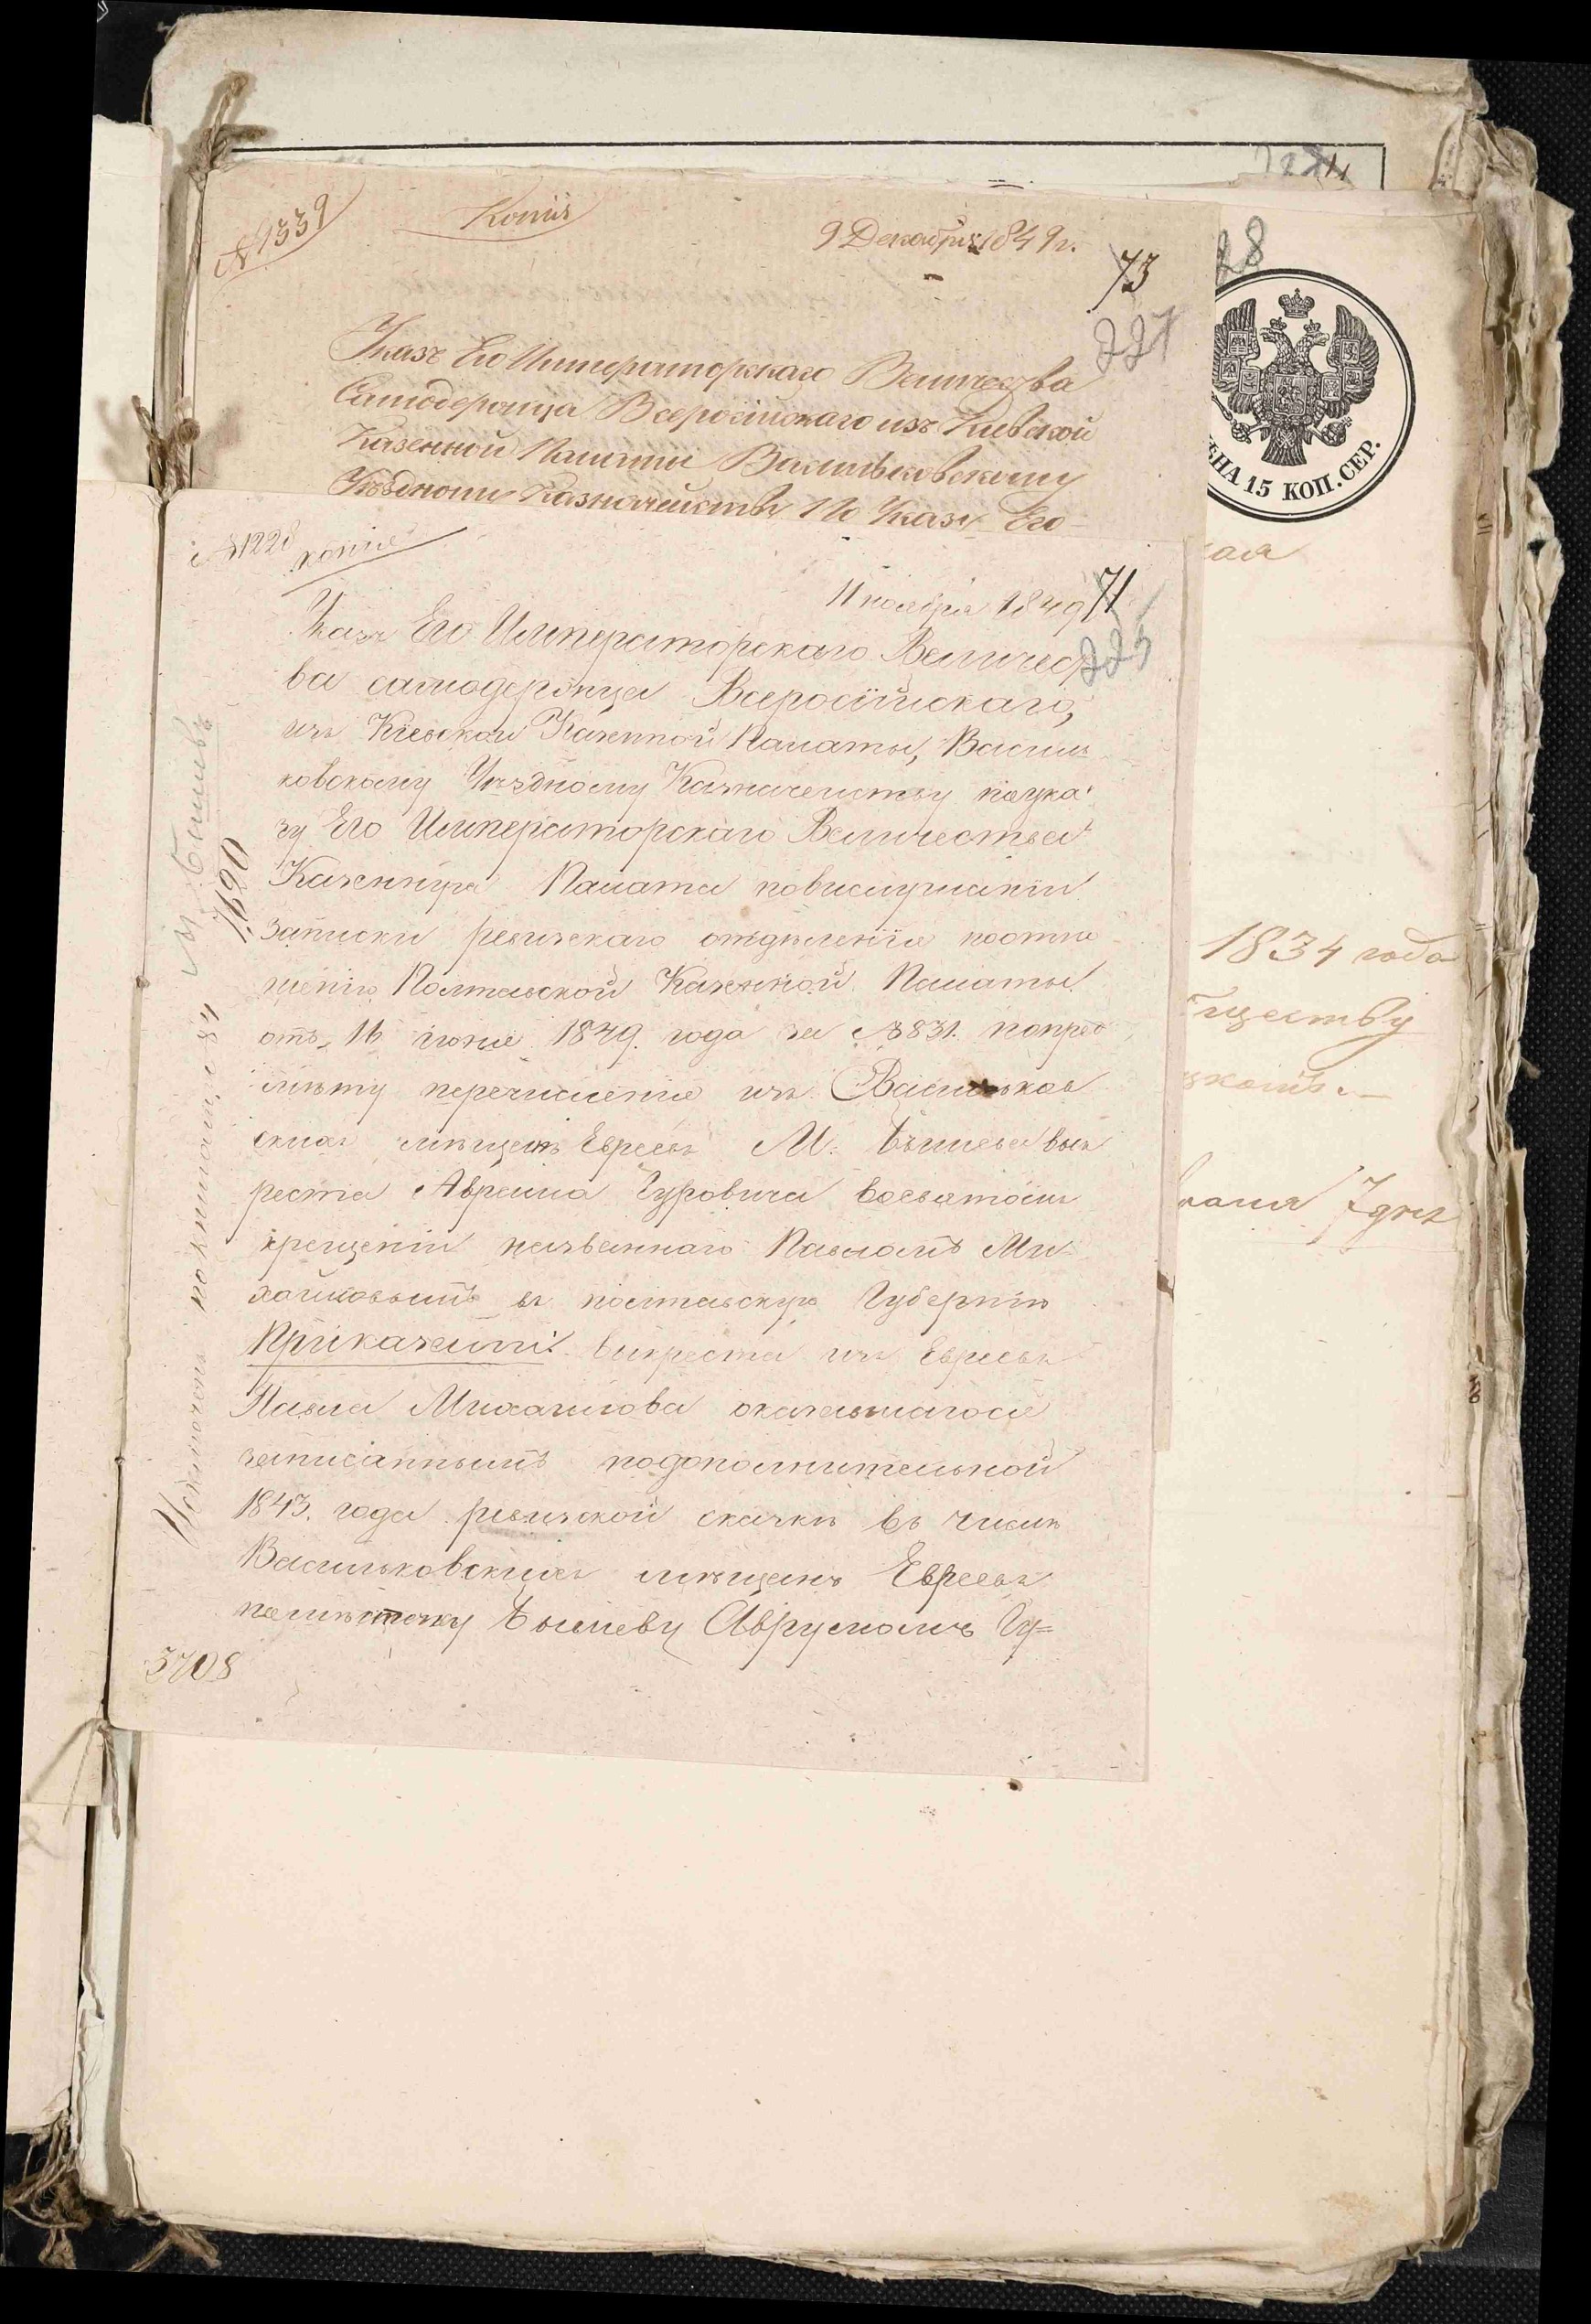 № 1339
Копія
9 Декабря 1849 г.
73
227
Указъ Его Императорскаго Величества
Самодержца Всеросійскаго изъ Киевской
Казенной Палаты Васильковскому
Уѣздному Казначейству По Указу Его
№ 1228
копие
11 ноября 1849
71
225
Указъ Его Императорскаго Величест
ва самодержца Всеросійскаго,
изъ Кіевской Казенной Палаты, Василь
ковскому Уѣздному Казначейству поука
зу Его Императорскаго Величества
Казенная Палата повислушаніи
записки ревизскаго отдѣленія поотно
шенію Полтавской Казенной Палаты
отъ 16 июня 1849. года за № 831. попред
мѣту перечисленія изъ Васильков
скихъ мѣщанъ Евреевъ М. Бышева вык
реста Аврама Гуровича восвятомъ
крещеніи названнаго Павломъ Ми
хайловымъ въ полтавскую Губернію
Приказали: выкреста изъ Евреевъ
Павла Михайлова оказавшагося
записаннымъ подополнительной
1843. года ревизской сказки въ числѣ
Васильковскихъ мѣщанъ Евреевъ
помѣстечку Бышеву Аврумомъ Гу=
3708
7690
Исключенъ покнигамъ 84 М. Бышевъ
28
ЦЕНА 15 КОП. СЕР.
ая
1834 года
ществу